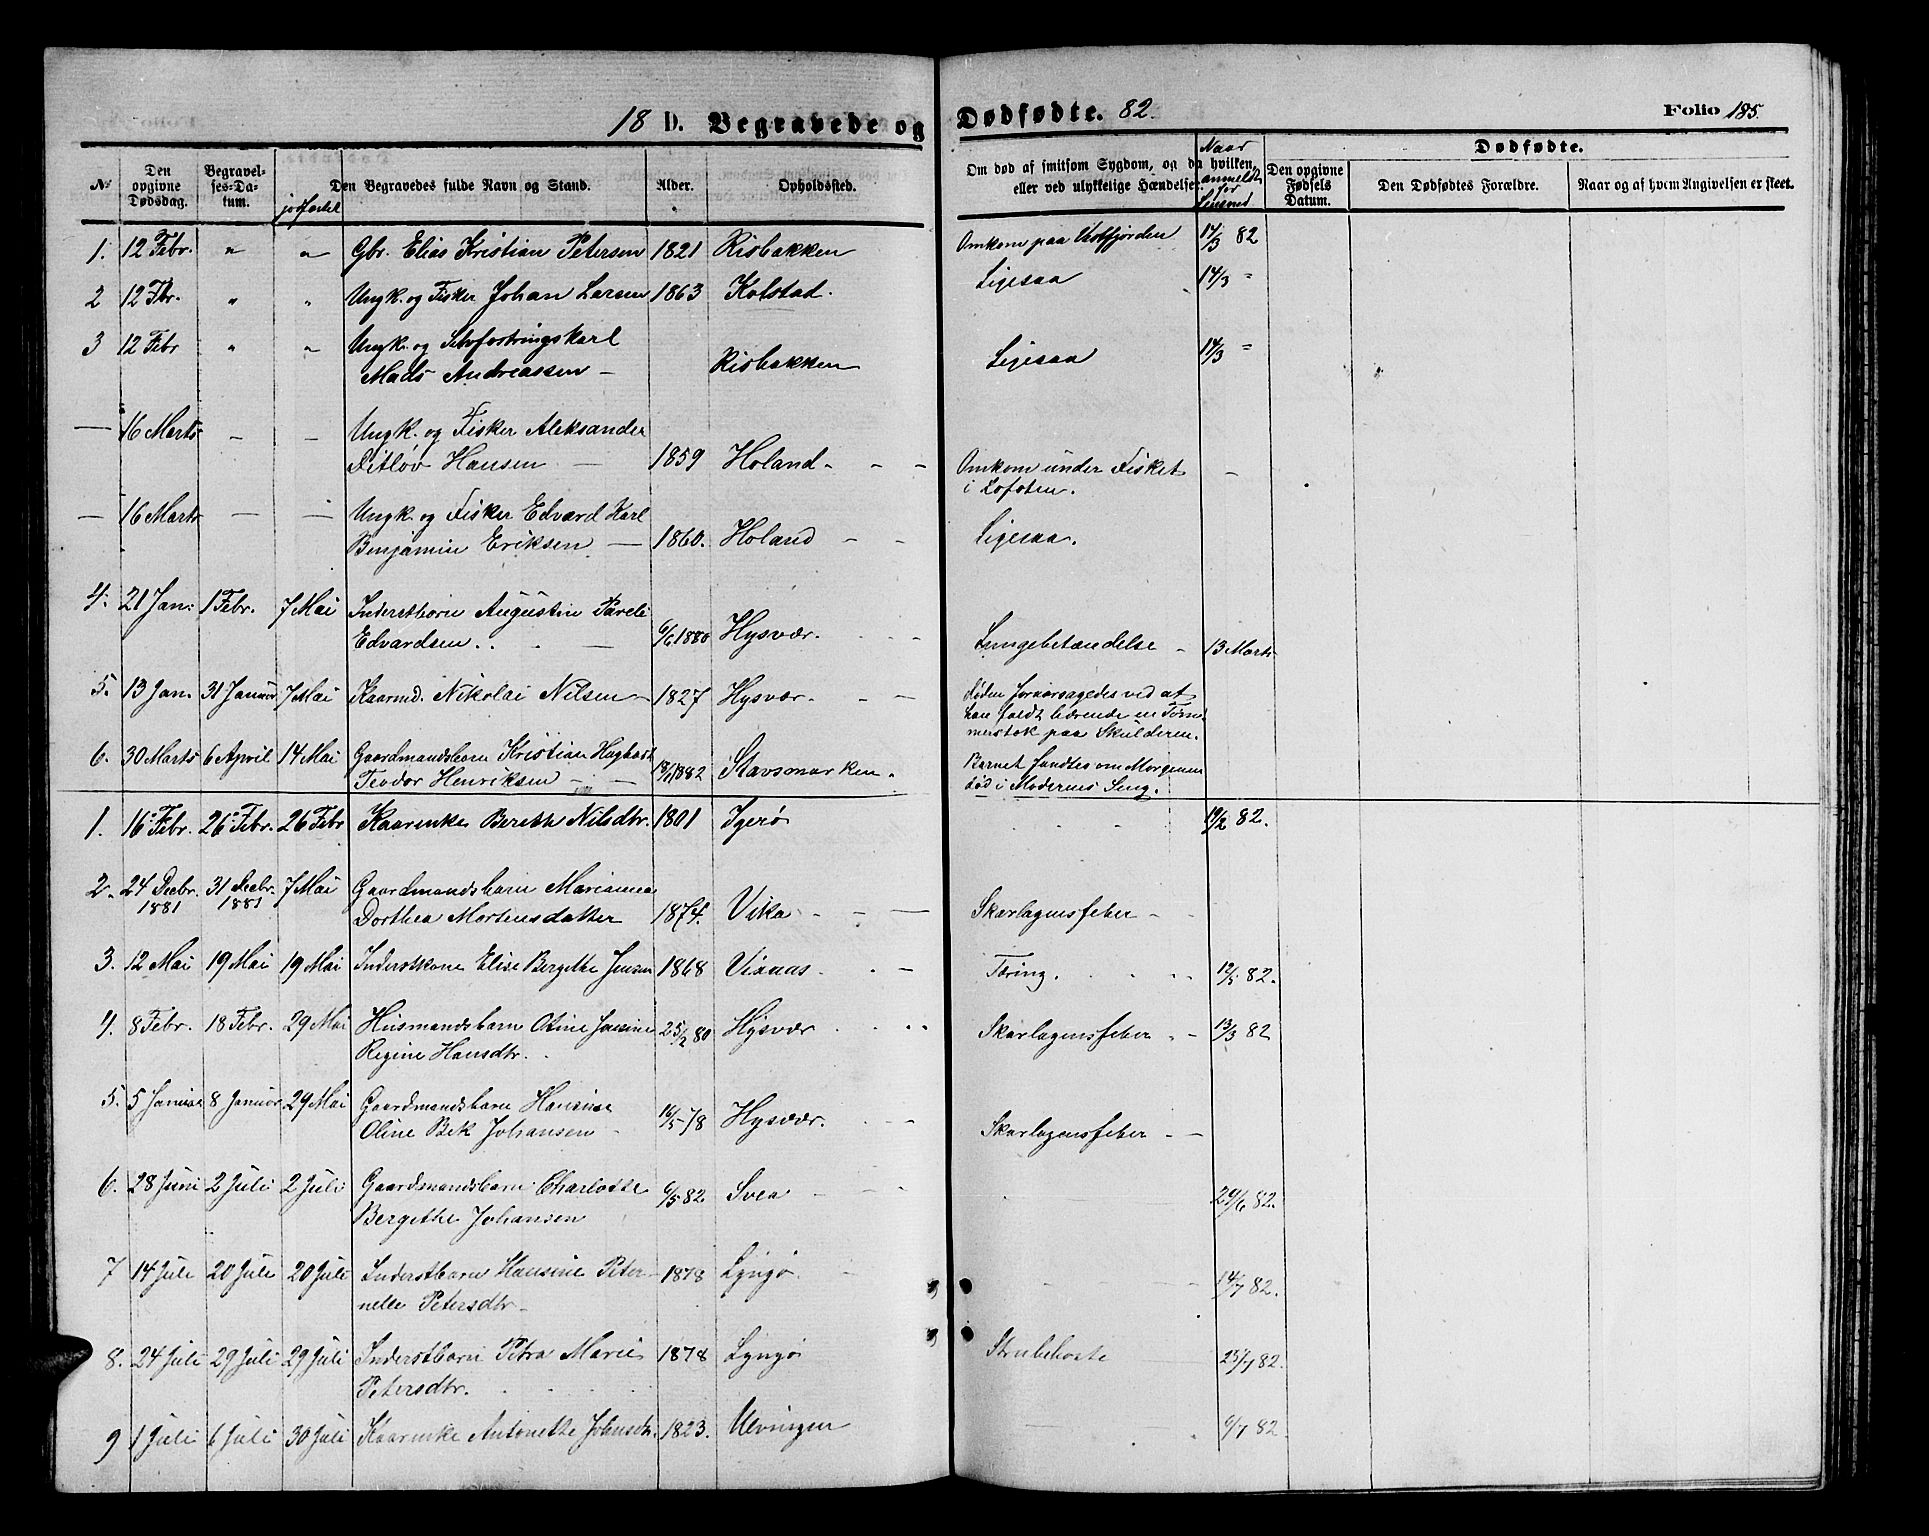 18 D. Begravede og Dødfødte. 82. Folio 185.
No. Den opgivne Dødsdag. Begravelses-Datum. jordfæstet Den Begravedes fulde Navn og Stand. Alder. Opholdssted. Om død af smitsom Sygdom, og da hvilken, eller ved ulykkelige Hændelser. Naar anmeldt for Lensmd Dødfødte.
Den opgivne Fødsels Datum. Den Dødfødtes Forældre. Naar og af hvem Angivelsen er skeet.
1. 12 Febr. " " Gbr. Elias Kristian Petersen 1821 Risbakken Omkom paa Vestfjorden 14/3 82
2 12 Fbr. " " Ungk. og Fisker Johan Larsen 1863 Kolstad. Ligesaa 14/3 "
3 12 Febr " " Ungk. og Selvforsørgskarl
Mads Andreassen — Risbakken Ligesaa 14/3 "
— 16 Marts — — Ungk. og Fisker Aleksander
Ditløv Hansen — 1859 Holand - - - Omkom under Fisket —
i Lofoten.
— 16 Marts — — Ungk. og Fisker Edvard Karl
Benjamin Eriksen — 1860. Holand - - Ligesaa.
4. 21 Jan: 1 Febr. 7 Mai Inderstbarn Augustin Pareli
Edvardsen . . — 6/6 1880 Hysvær. Lungebetændelse - 13 Marts
5. 13 Jan. 31 Januar 7 Mai Kaarmd. Nikolai Nilsen — 1827 Hysvær. - - Døden foraarsagedes ved at
han faldt bærende en Tømmerstok paa Skulderen.
6. 30 Marts 6 April 14 Mai Gaardmandsbarn Kristian Hagbart
Teodor Henriksen — 1882 Stavsmarken. Barnet fandtes om Morgenen
død i Moderens Seng.
1. 16 Febr. 26 Febr. 26 Febr Kaarenke Bereth Nilsdtr. 1801 Igerø 19/2 82.
2. 24 Decbr. 1881 31 Decbr. 1881 7 Mai Gaardmandsbarn Marianna
Dorthea Mortensdatter 1874. Vika - - — Skarlagensfeber -
3. 12 Mai 19 Mai 19 Mai Inderstkone Elise Bergethe Jensen 1848 Vixnas . - Tæring. 12/5 82.
4. 8 Febr. 18 Febr. 29 Mai Husmandsbarn Oline Jensine
Regine Hansdtr. 25/2 80 Hysvær Skarlagensfeber - 13/3 82
5. 5 Januar 8 Januar 29 Mai Gaardmandsbarn Hansine
Oline Bek Johansen 16/5 78 Hysvær. - Skarlagensfeber - -
6. 28 Juni 2 Juli 2 Juli Gaardmandsbarn Charlotte
Bergethe Johansen 6/5 82 Svea 29/6 82.
7 14 Juli 20 Juli 20 Juli Inderstbarn Hansine Peternelle Petersdtr. 1878 Lyngø. 14/7 82.
8. 24 Juli 29 Juli 29 Juli Inderstbarn Petra Marie
Petersdtr. 1878 Lyngø Strubehoste 25/7 82.
9 1 Juli 6 Juli 30 Juli Kaarenke Antonethe Johnsdtr. 1823. Ulvingen 6/7 82